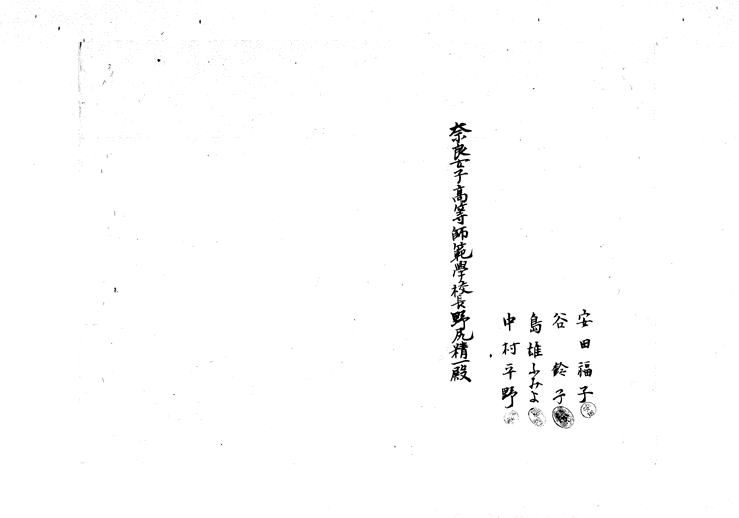 安田福子
谷鈴子
島雄ふみよ
中村平野
奈良女子高等師範學校長野尻精一殿